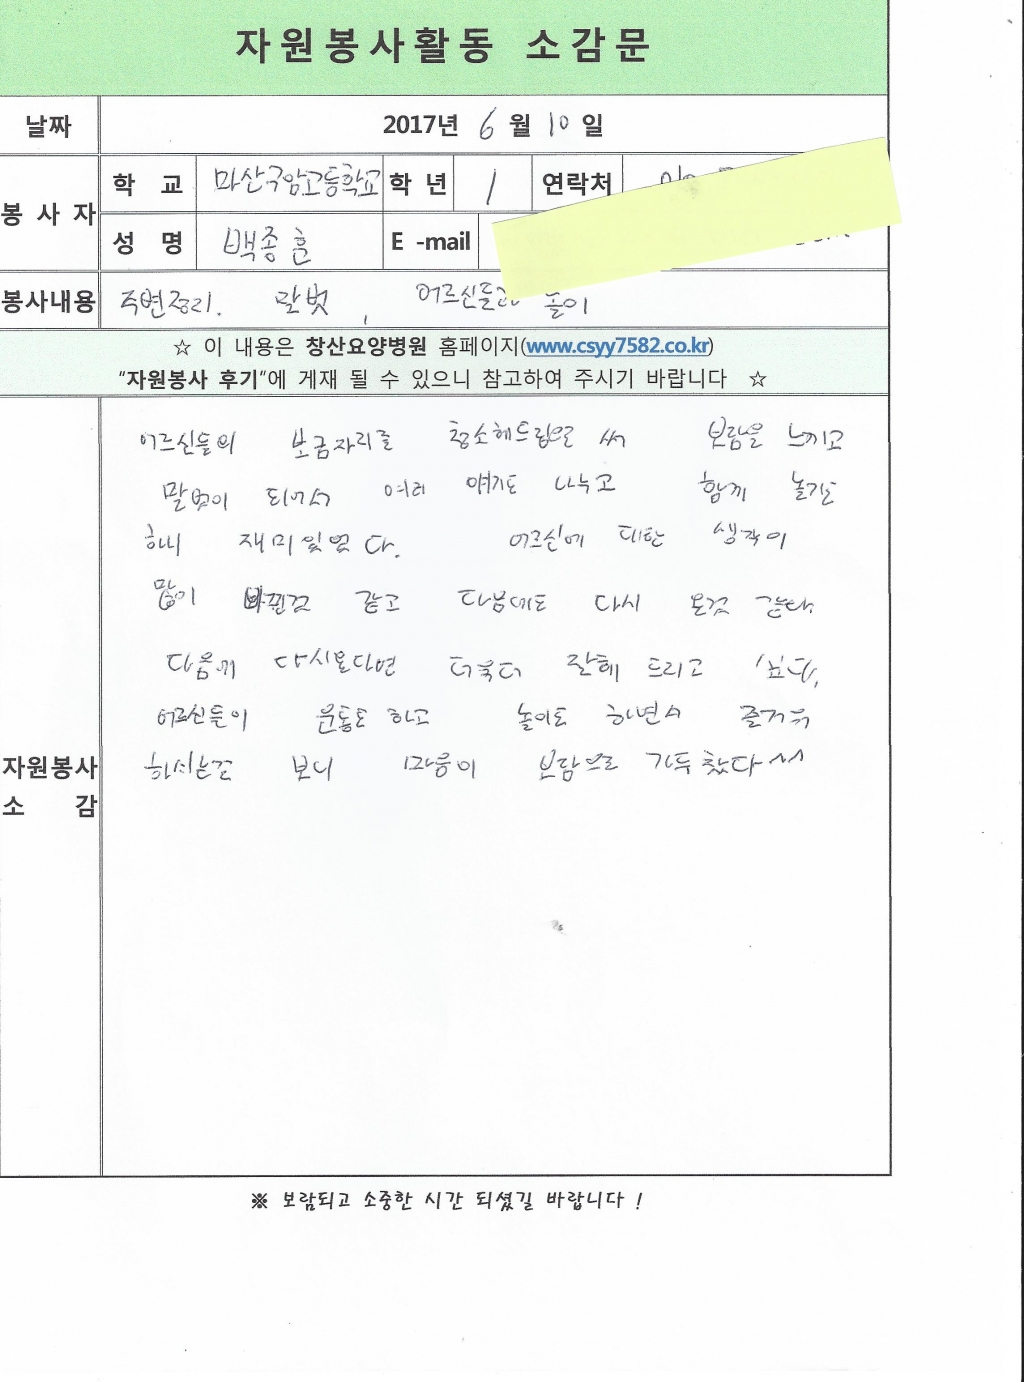 자원봉사활동 소감문
날짜 2017년 6 월 10 일
봉 사 자 학 교 마산구암고등학교 학 년 1 연락처
성 명 백종훈 E -mail
봉사내용 주변정리. 말벗, 어르신들과 놀이
☆ 이 내용은 창산요양병원 홈페이지(www.csyy7582.co.kr)
“자원봉사 후기”에 게재 될 수 있으니 참고하여 주시기 바랍니다 ☆
어르신들의 보금자리를 청소해드림으로 써 보람을 느끼고
말벗이 되어서 여러 얘기도 나누고 함께 놀기도
하니 재미있었다. 어르신에 대한 생각이
많이 바뀐것 같고 다음에도 다시 올것 같다.
다음에 다시온다면 더욱더 잘해 드리고 싶다.
어르신들이 운동도 하고 놀이도 하면서 즐거워
하시는걸 보니 마음이 보람으로 가득찼다^^
자원봉사
소 감
※ 보람되고 소중한 시간 되셨길 바랍니다 !